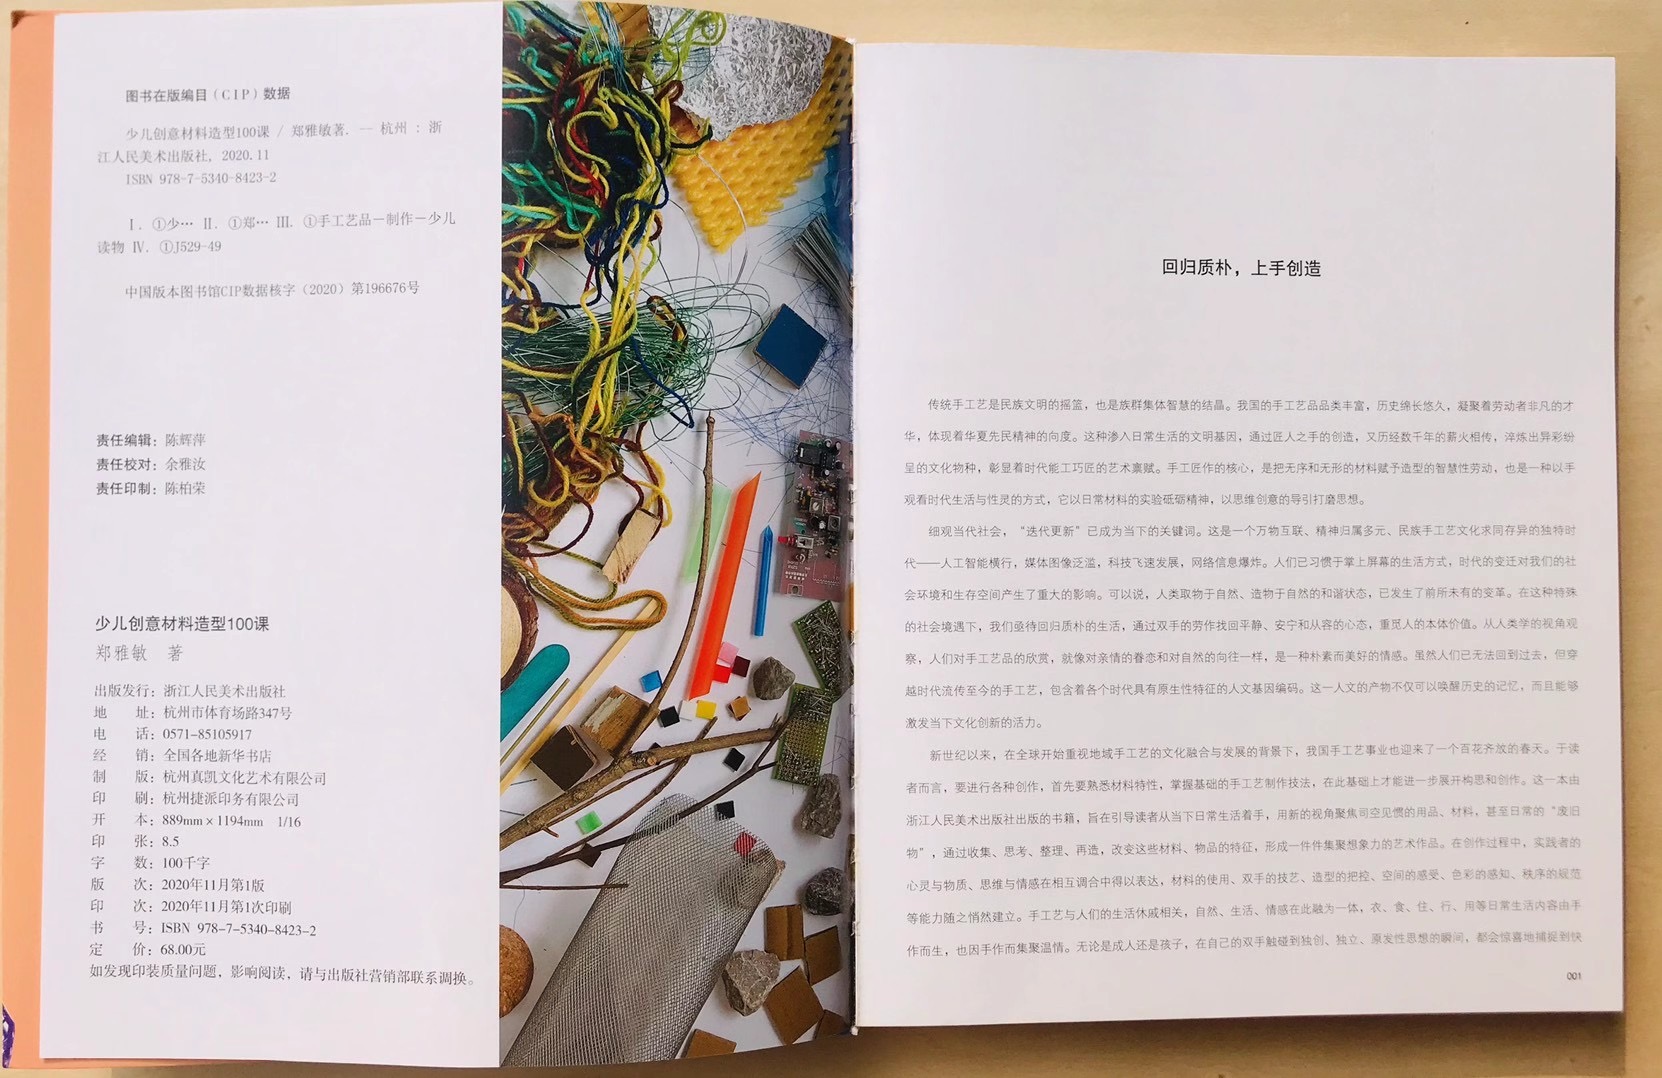 图书在版编目（CIP）数据
少儿创意材料造型100课 / 郑雅敏著. — 杭州 : 浙
江人民美术出版社, 2020.11
ISBN 978-7-5340-8423-2
Ⅰ. ①少… Ⅱ. ①郑… Ⅲ. ①手工艺品－制作－少儿
读物 Ⅳ. ①J529-49
中国版本图书馆CIP数据核字（2020）第196676号
责任编辑：陈辉萍
责任校对：余雅汝
责任印制：陈柏荣
少儿创意材料造型100课
郑雅敏 著
出版发行：浙江人民美术出版社
地 址：杭州市体育场路347号
电 话：0571-85105917
经 销：全国各地新华书店
制 版：杭州真凯文化艺术有限公司
印 刷：杭州捷派印务有限公司
开 本：889mm×1194mm 1/16
印 张：8.5
字 数：100千字
版 次：2020年11月第1版
印 次：2020年11月第1次印刷
书 号：ISBN 978-7-5340-8423-2
定 价：68.00元
如发现印装质量问题，影响阅读，请与出版社营销部联系调换。
回归质朴，上手创造
传统手工艺是民族文明的摇篮，也是族群集体智慧的结晶。我国的手工艺品品类丰富，历史绵长悠久，凝聚着劳动者非凡的才
华，体现着华夏先民精神的向度。这种渗入日常生活的文明基因，通过匠人之手的创造，又历经数千年的薪火相传，淬炼出异彩纷
呈的文化物种，彰显着时代能工巧匠的艺术禀赋。手工匠作的核心，是把无序和无形的材料赋予造型的智慧性劳动，也是一种以手
观看时代生活与性灵的方式，它以日常材料的实验砥砺精神，以思维创意的导引打磨思想。
细观当代社会，“迭代更新”已成为当下的关键词。这是一个万物互联、精神归属多元、民族手工艺文化求同存异的独特时
代——人工智能横行，媒体图像泛滥，科技飞速发展，网络信息爆炸。人们已习惯于掌上屏幕的生活方式，时代的变迁对我们的社
会环境和生存空间产生了重大的影响。可以说，人类取物于自然、造物于自然的和谐状态，已发生了前所未有的变革。在这种特殊
的社会境遇下，我们亟待回归质朴的生活，通过双手的劳作找回平静、安宁和从容的心态，重觅人的本体价值。从人类学的视角观
察，人们对手工艺品的欣赏，就像对亲情的眷恋和对自然的向往一样，是一种朴素而美好的情感。虽然人们已无法回到过去，但穿
越时代流传至今的手工艺，包含着各个时代具有原生性特征的人文基因编码。这一人文的产物不仅可以唤醒历史的记忆，而且能够
激发当下文化创新的活力。
新世纪以来，在全球开始重视地域手工艺的文化融合与发展的背景下，我国手工艺事业也迎来了一个百花齐放的春天。于读
者而言，要进行各种创作，首先要熟悉材料特性，掌握基础的手工艺制作技法，在此基础上才能进一步展开构思和创作。这一本由
浙江人民美术出版社出版的书籍，旨在引导读者从当下日常生活着手，用新的视角聚焦司空见惯的用品、材料，甚至日常的“废旧
物”，通过收集、思考、整理、再造，改变这些材料、物品的特征，形成一件件集聚想象力的艺术作品。在创作过程中，实践者的
心灵与物质、思维与情感在相互调合中得以表达，材料的使用、双手的技艺、造型的把控、空间的感受、色彩的感知、秩序的规范
等能力随之悄然建立。手工艺与人们的生活休戚相关，自然、生活、情感在此融为一体，衣、食、住、行、用等日常生活内容由手
作而生，也因手作而集聚温情。无论是成人还是孩子，在自己的双手触碰到独创、独立、原发性思想的瞬间，都会惊喜地捕捉到快
001